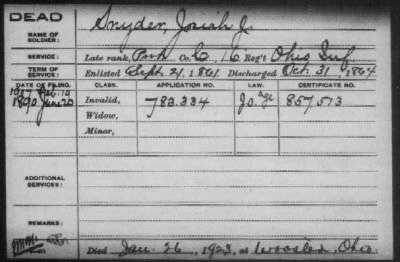 DEAD
NAME OF SOLDIER: Snyder, Josiah J.
SERVICE: Late rank, Co. C, 16 Reg't Ohio Inf
TERM OF SERVICE: Enlisted Sept. 21, 1861, Discharged Oct. 31, 1864
DATE OF FILING. CLASS. APPLICATION NO. LAW. CERTIFICATE NO.
1917 Feb. 19
1890 June 20 Invalid, 783.334 Jo. age 857,573
Widow,
Minor,
ADDITIONAL SERVICES:
REMARKS:
Died Jan. 26, 1923, at Wooster, Ohio.